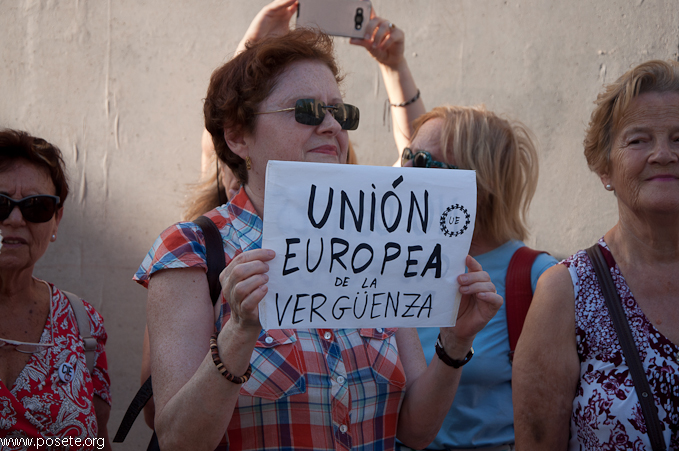 UNIÓN
UE
EUROPEA
DE LA
VERGÜENZA
www.posete.org